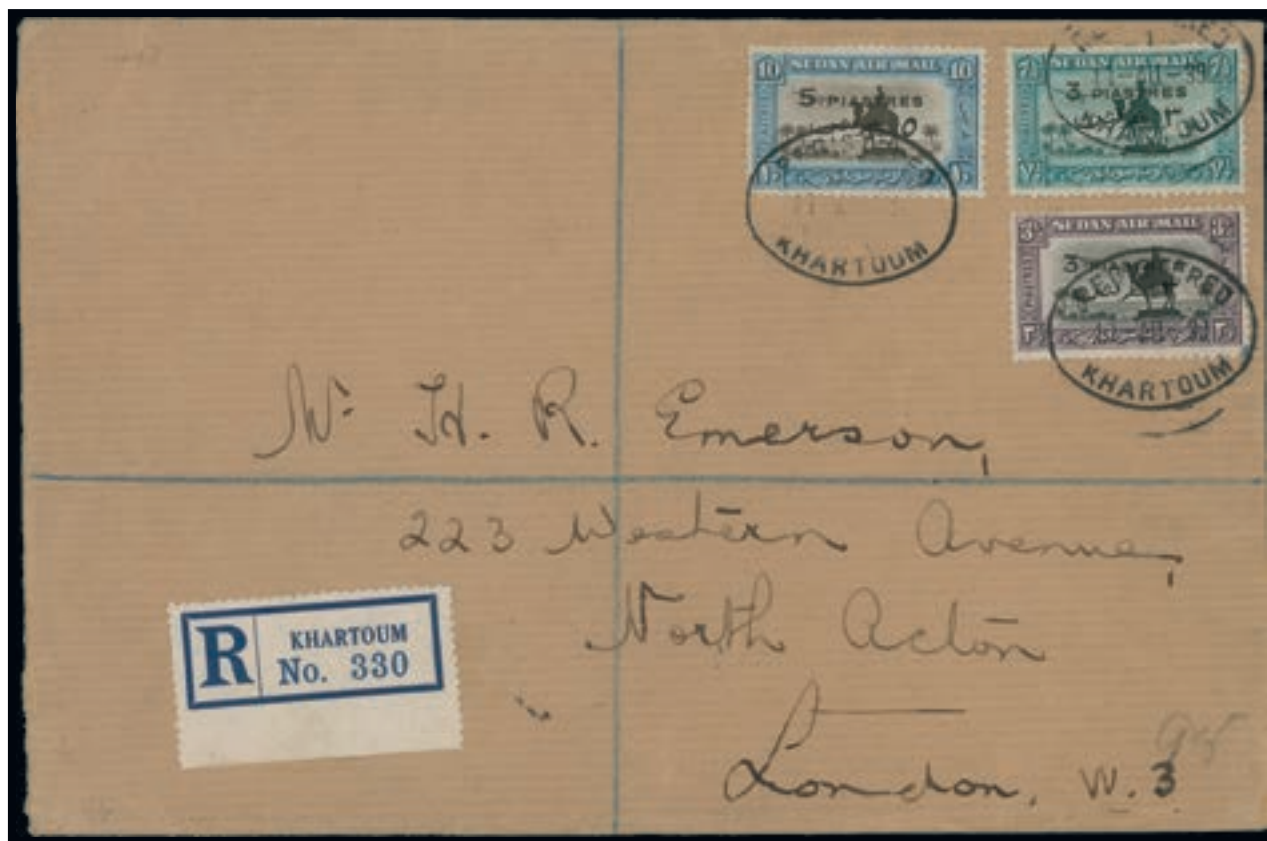 10 SUDAN AIR MAIL 10
5 PIASTRES
٥
REGISTERED
KHARTOUM
7½ SUDAN AIR MAIL 7½
3 PIASTRES
٣
KHARTOUM
SUDAN AIR MAIL
3 PIASTRES
REGISTERED
KHARTOUM
Mr H. R. Emerson,
223 Western Avenue,
North Acton
London. W.3
R
KHARTOUM
No. 330